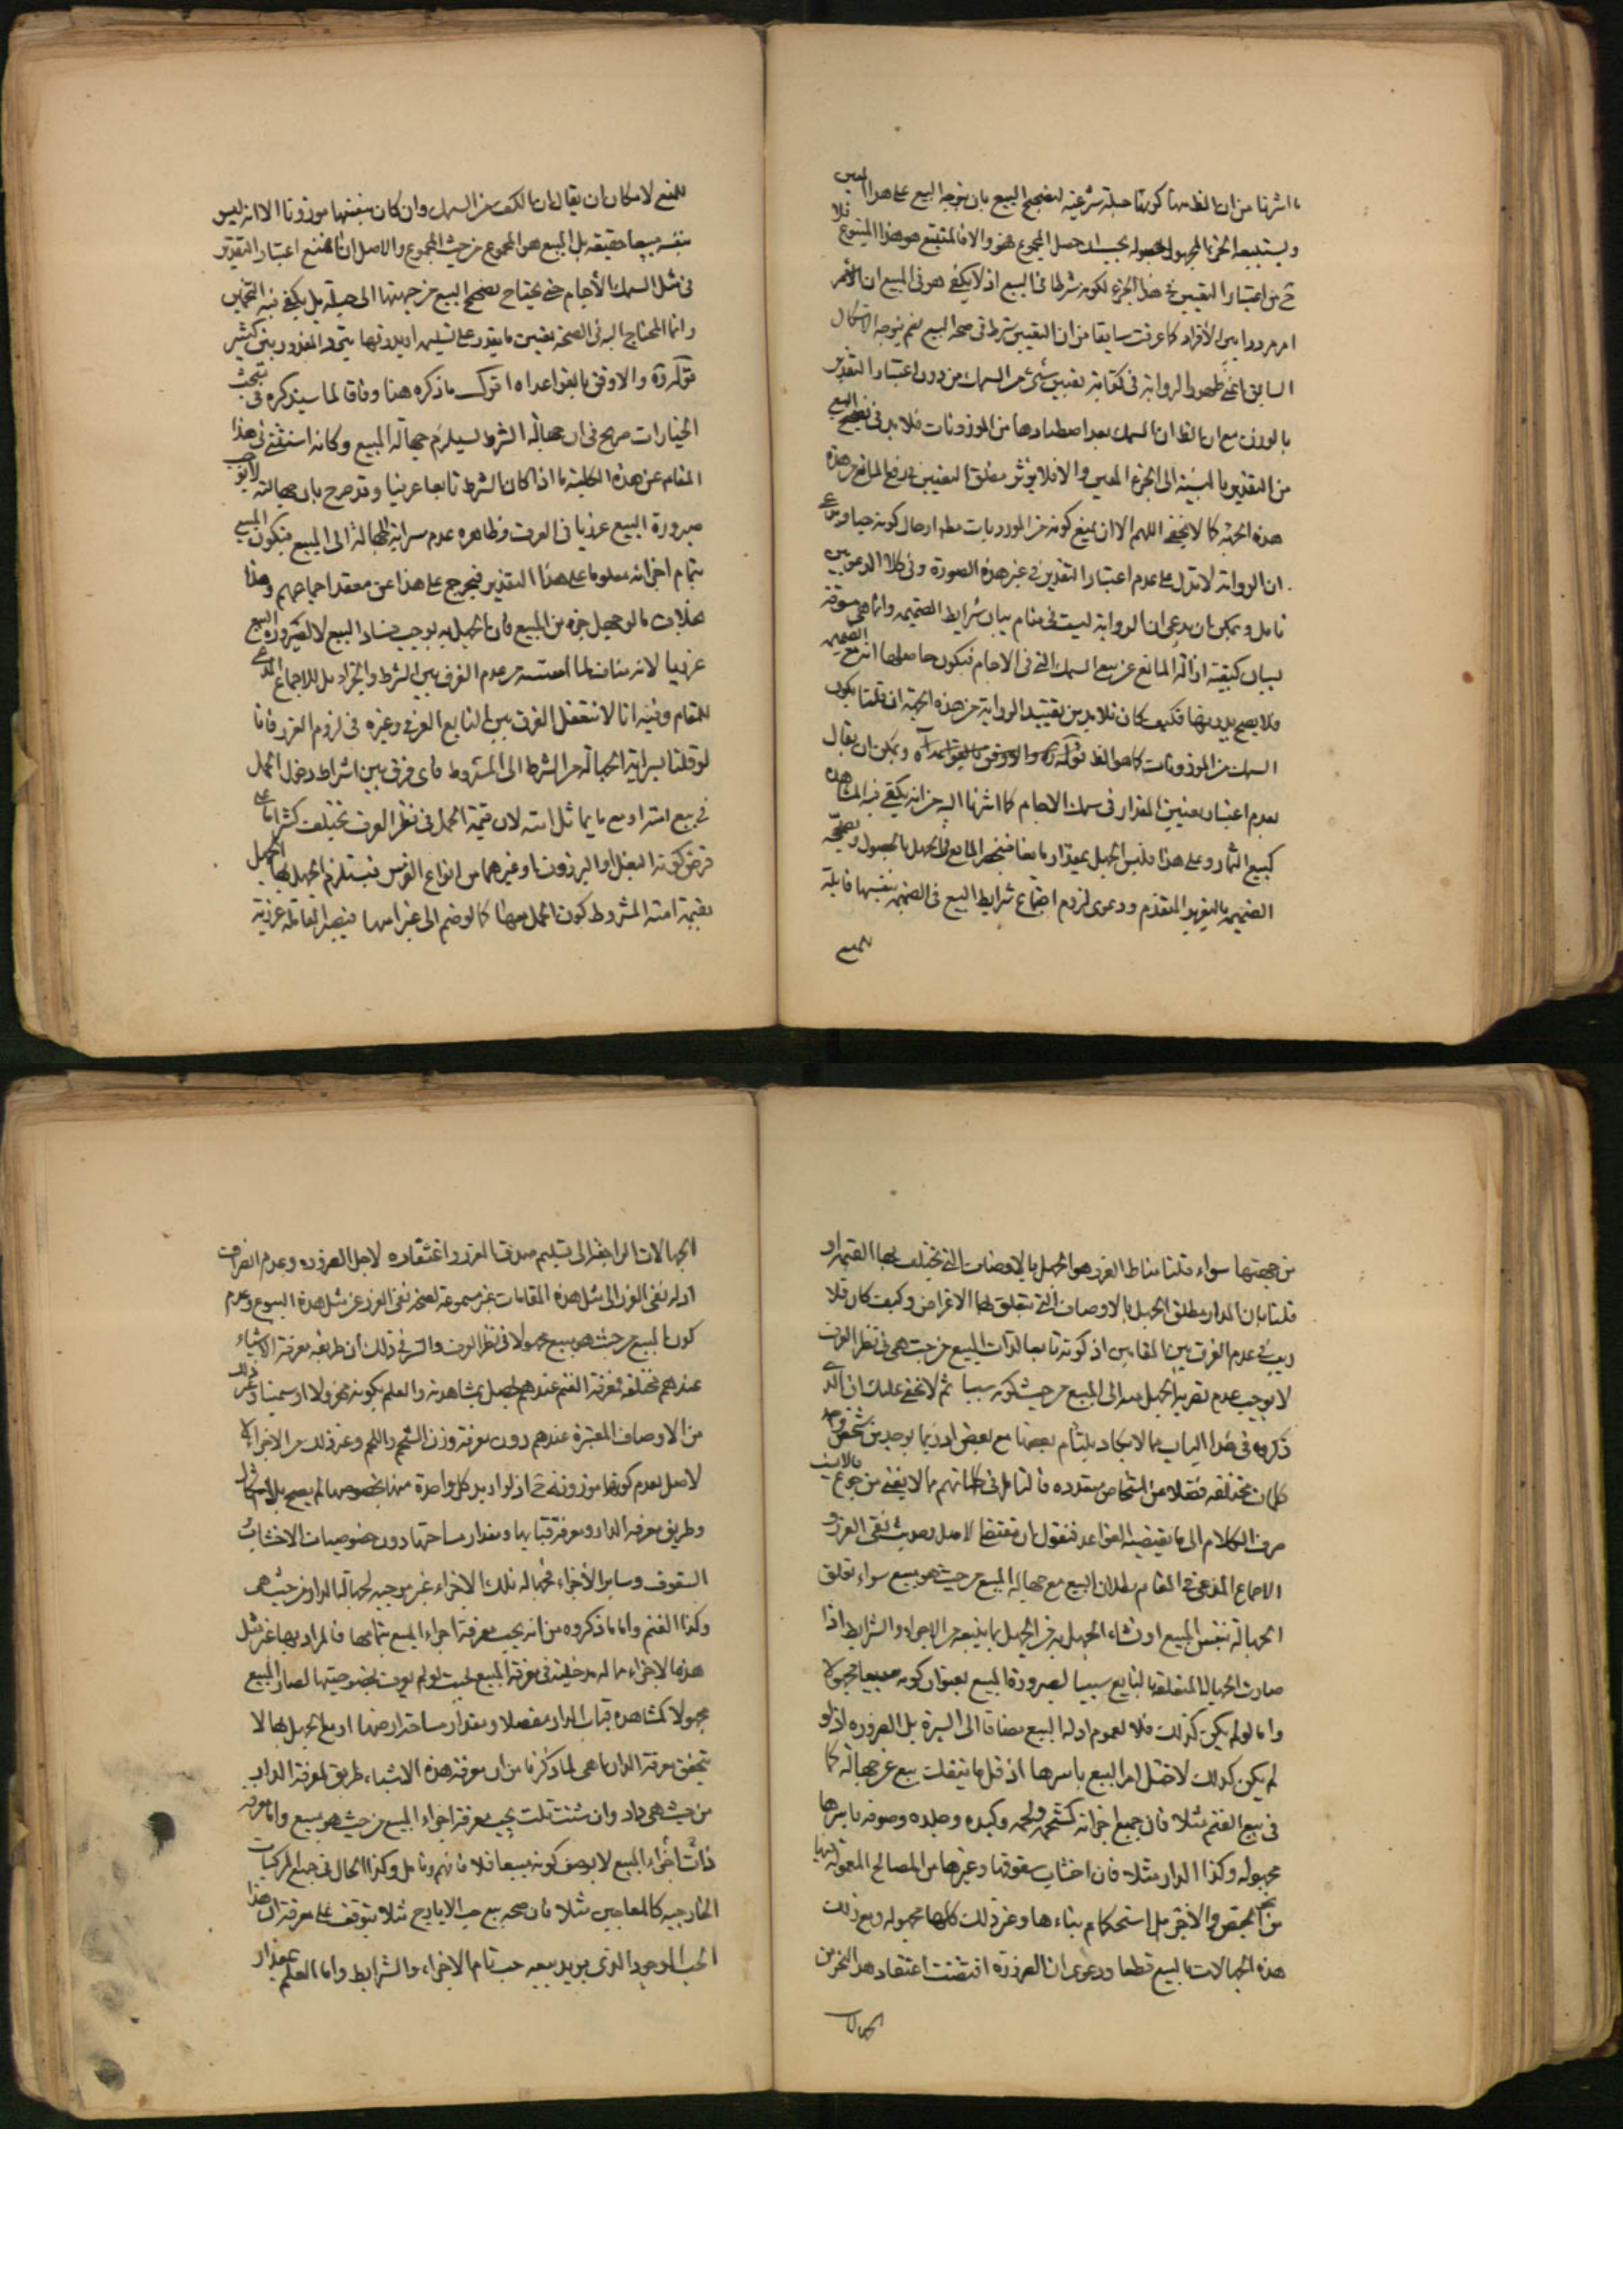 ما اشرنا من ان الظ منها كونها حيلة شرعية لتصحيح البيع بان يتوجه البيع على هذا المعين
ويستتبعه الجزء المجهول حصوله بحيث ان حصل المجموع فهو والا فالمتتبع هو هذا المتبوع فلا
ثم من اعتبار التعيين في هذا الجزء لكونه شرطا في البيع اذ لا يكفي هو في المبيع ان الامر
امر مردد بين الأفراد كما عرفت سابقا من ان التعيين شرط في صحة البيع نعم يتوجه الاشكال
السابق اعني ظهور الرواية في كفاية تعيين شئ من السمك من دون اعتبار التقدير
بالوزن مع ان الظ ان السمك بعد اصطيادها من الموزونات فلا بد في تصحيح البيع
من التقدير بالنسبة الى الجزء المعين والا فلا يؤثر مطلق التعيين في دفع المانع من هذه
هذه الجهة كما لا يخفى اللهم الا ان يمنع كونه من الموزونات مطلقا حال كونه حيا
ان الرواية لا تدل على عدم اعتبار التقدير في غير هذه الصورة وفي كلا الدعويين
تامل ويمكن ان يدعى ان الرواية ليست في مقام بيان شرايط الضميمه وانما هي مسوقة
لبيان كيفية ازالة المانع عن بيع السمك التي في الاجام فيكون حاصلها انه مع الضميمه
فلا يصح بدونها فكيف كان فلا بد من تقييد الرواية من هذه الجهة ان قلنا بكون
السمك من الموزونات كما هو الظ قوله ره والاوفق بالقواعد اه ويمكن ان يقال
بعدم اعتبار تعيين المقدار في سمك الاجام كما اشرنا اليه من انه يكفي فيه المشاهدة
كبيع الثمار وعلى هذا فليس الجهل بمقداره مانعا فينحصر المانع في الجهل بالحصول وتصحيحه
الضميمة بالتقريب المتقدم ودعوى لزوم اجتماع شرايط البيع في الضميمة بنفسها قابلة
للمنع
للمنع لامكان ان يقال ان الكف من السمك وان كان بنفسها موزونا الا انه ليس
بنفسه مبيعا حقيقة بل المبيع هو المجموع من حيث المجموع والاصل انا نمنع اعتبار التقدير
في مثل السمك بالأجام حتى يحتاج تصحيح البيع من جهتها الى حيلة بل يكفي فيه التخمين
وانما المحتاج اليه في الصحة تعيين ما يقدر على تسليمه اذ بدونها يتردد المقدور بين كثير
قوله ره والاوفق بالقواعد اه اقول ما ذكره هنا وفاقا لما سيذكره في مبحث
الخيارات صريح في ان جهالة الشرط يستلزم جهالة المبيع وكانه استثنى في هذا
المقام عن هذه الكلية ما اذا كان الشرط تابعا عرفيا وقد صرح بان جهالته لا يوجب
صيرورة البيع غرريا في العرف وظاهره عدم سراية الجهالة الى المبيع فيكون المبيع
بتمام اجزائه معلوما على هذا التقدير فيخرج على هذا عن معقد اجماعهم وهذا
بخلاف ما لو جهل جزء من المبيع فان الجهل به يوجب فساد البيع لا لصيرورة البيع
غرريا لانه مناف لما من عدم الفرق بين الشرط والجزء بل للاجماع المدعى
للمقام وفيه انا لا نتعقل الفرق بين التابع العرفي وغيره في لزوم الغرر فانا
لو قلنا بسراية الجهالة من الشرط الى المشروط فاي فرق بين اشتراط دخول الحمل
في بيع امته او مع ما يماثل امته لان قيمة الحمل في نظر العرف تختلف كثيرا ما على
فرض كونه البغل او البرذون او غيرهما من انواع الفرس فيستلزم الجهل بها الجهل
بقيمة امته المشروط كون الحمل معها كما لو ضم الى غير امها فيصير المعاملة غررية
من جهتها سواء قلنا مناط الغرر هو الجهل بالاوصاف التي تختلف بها القيمة او
قلنا بان المدار مطلق الجهل بالاوصاف التي تتعلق بها الاغراض وكيف كان فلا
ريب في عدم الفرق بين المقامين اذ كونه تابعا لذات المبيع من حيث هي في نظر العرف
لا يوجب عدم تسرية الجهل منه الى المبيع من حيث كونه مبيعا ثم لا يخفى عليك ان الذي
ذكروه في هذا الباب مما لا يكاد يلتئام بعضها مع بعض اذ ربما يوجد من شخص واحد
كلمات مختلفة فضلا عن اشخاص متعدده فالتامل في كلماتهم مما لا يغني من جوع فالاليق
صرف الكلام الى ما يقتضيه القواعد فنقول ان مقتضى الاصل وحديث نفى الغرر و
الاجماع المدعى في المقام بطلان البيع مع جهالة المبيع من حيث هو مبيع سواء تعلق
الجهالة بنفس المبيع او نشاء الجهل به من الجهل بما يتبعه من الاجزاء والشرايط اذا
صارت الجهالة المتعلقة بالتابع سببا لصيرورة المبيع بعنوان كونه مبيعا مجهولا
واما لو لم يكن كذلك فلا لعموم ادلة البيع مضافا الى السيرة بل الضرورة اذ لو
لم يكن كذلك لاختل امر البيع باسرها اذ قل ما ينفك بيع عن جهالة كما
في بيع الغنم مثلا فان جميع اجزائه كشحمه ولحمه وكبده وجلده وصوفه باسرها
مجهولة وكذا الدار مثلا فان اخشاب سقوفها وغيرها من المصالح المعمولة فيها
من الجص والاجر بل استحكام بناءها وغير ذلك كلها مجهوله ومع ذلك
هذه الجهالات بالبيع قطعا ودعوى ان الضرورة اقتضت اغتفار هذا النحو من
الجهالات
الجهالات الراجعة الى تسليم صدق الغرر واغتفاره لاجل الضرورة وعدم انصراف
ادلة نفى الغرر الى مثل هذه المقامات غير مسموعة لصحة نفى الغرر عن مثل هذه البيوع وعدم
كون المبيع من حيث هو مبيع مجهولا في نظر العرف والسر في ذلك ان طريقة معرفة الاشياء
عندهم مختلفة فمعرفة الغنم عندهم يحصل بمشاهدته والعلم بكونه مهزولا او سمينا وغير ذلك
من الاوصاف المعتبرة عندهم دون معرفة وزن الشحم واللحم وغير ذلك من الاجزاء
لا صل بعدم كونها موزونة حتى اذ لو اريد بيع كل واحدة منها بخصوصها لم يصح بلا
وطريق معرفة الدار ومعرفة قبابها ومقدار مساحتها دون خصوصيات الاخشاب
السقوف وساير الأجزاء فجهالة تلك الاجزاء غير موجبة لجهالة الدار من حيث هي
وكذا الغنم واما ما ذكروه من انه يجب معرفة اجزاء المبيع بتمامها فالمراد بها غير مثل
هذه الاجزاء مما له مدخلية في معرفة المبيع بحيث لو لم يعرف بخصوصيتها لصار المبيع
مجهولا كمشاهدة قباب الدار مفصلا ومقدار مساحة ارضها اذ مع الجهل بها لا
يتحقق معرفة الدار ما هي لما ذكرنا من ان معرفة هذه الاشياء طريق لمعرفة الدار
من حيث هي دار وان شئت قلت يجب معرفة اجزاء المبيع من حيث هو مبيع واما معرفة
ذات اجزاء المبيع لا بوصف كونه مبيعا فلا فافهم وتامل وكذا الحال في جميع المركبات
الخارجية كالمعاجين مثلا فان صحة بيع حب الايارج مثلا يتوقف على معرفة ان هذا
الحب الموجود الذي يريد بيعه حب تام الاجزاء والشرايط واما العلم بمقدار